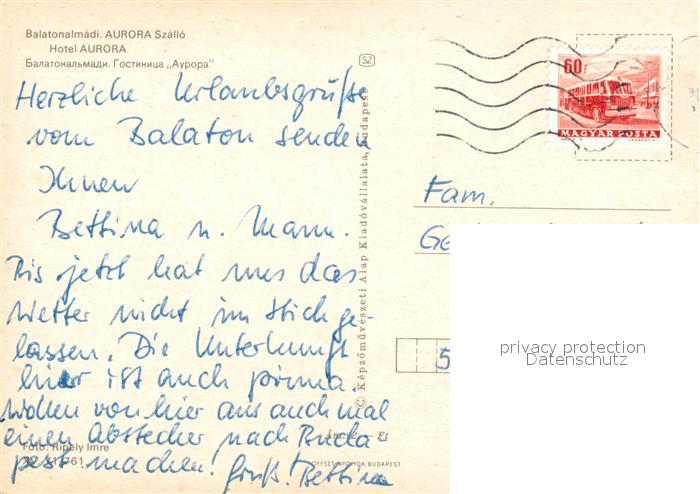 Balatonalmádi. AURORA Szálló
Hotel AURORA
Балатональмади. Гостиница „Аурора"
SZ
60f
MAGYAR POSTA
Herzliche Urlaubsgrüße
vom Balaton senden
Ihnen
Bettina u. Mann.
Bis jetzt hat uns das
Wetter nicht im Stich ge
lassen. Die Unterkunft
hier ist auch prima.
Wollen von hier aus auch mal
einen Abstecher nach Buda
pest machen. Gruß! Bettina
© Képzőművészeti Alap Kiadóvállalata, Budapest
Fam.
Ge
5
privacy protection
Datenschutz
Foto: Ripely Imre
Ft
OFFSET NYOMDA BUDAPEST